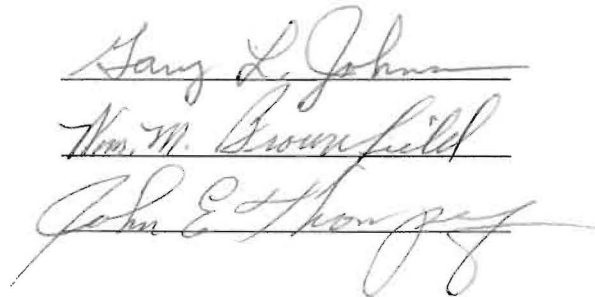 Gary L. Johnson
Wm. M. Brownfield
John E Thompson